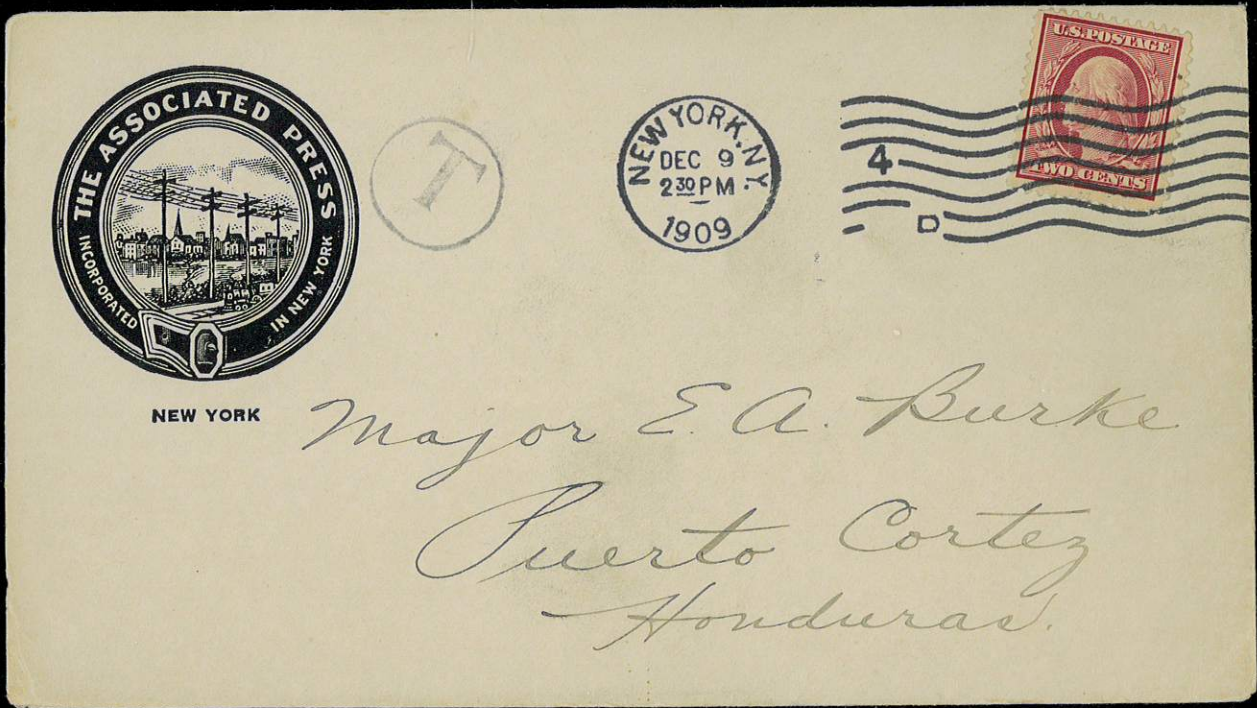 THE ASSOCIATED PRESS
INCORPORATED IN NEW YORK
NEW YORK
T
NEW YORK, N.Y.
DEC 9
2 30 PM
1909
4
D
U.S. POSTAGE
TWO CENTS
Major E. A. Burke
Puerto Cortez
Honduras.